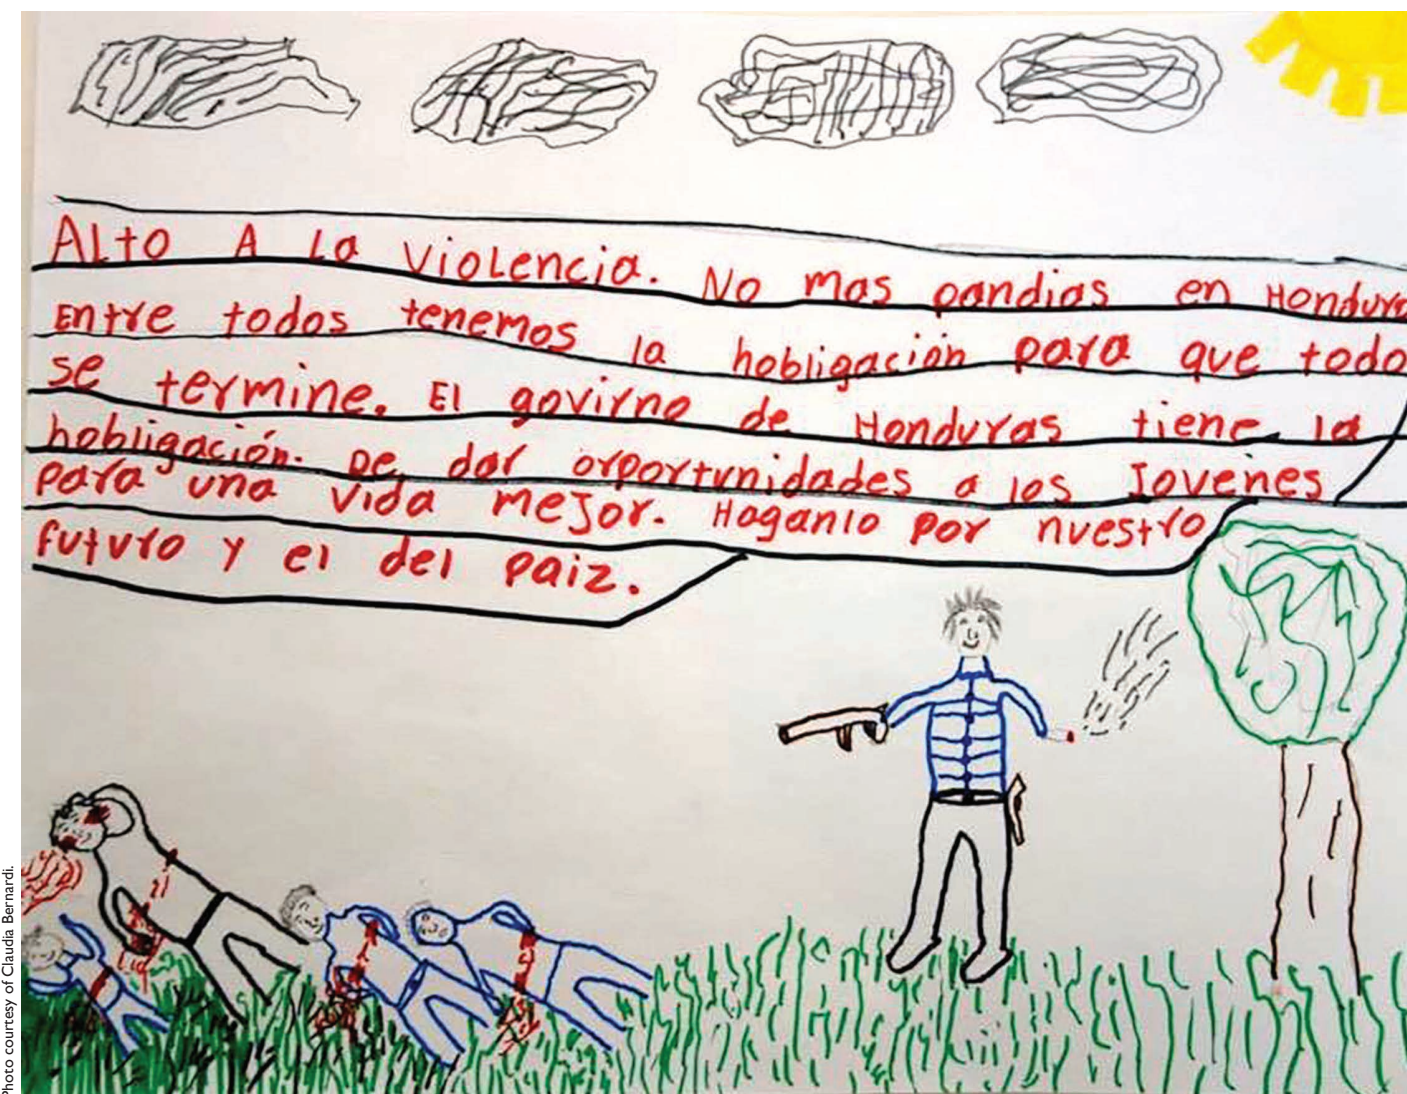 ALto A La VioLencia. No mas pandias en Hondura
Entre todos tenemos la hobligación para que todo
se termine. El govirno de Honduras tiene la
hobligación. De dar orportunidades a los Jovenes
para una vida meJor. Haganlo por nuestro
futuro y el del paiz.
Photo courtesy of Claudia Bernardi.